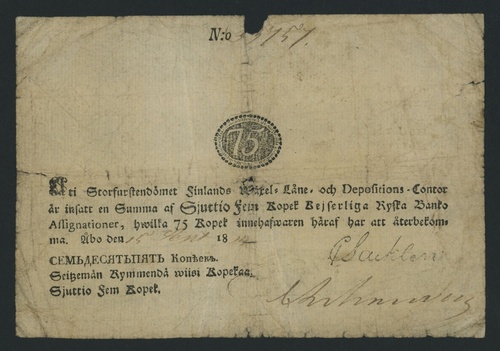 N:o 757.
75
Uti Storfurstendömet Finlands Wäxel-, Låne- och Depositions-Contor
är insatt en Summa af Sjuttio Fem Kopek Kejserliga Ryska Banko
Assignationer, hwilka 75 Kopek innehafwaren häraf har att återbekom-
ma. Åbo den 15 18
СЕМЬДЕСЯТЬПЯТЬ Копѣекъ.
Seitzemän Kymmendä wiisi Kopekaa,
Sjuttio Fem Kopek.